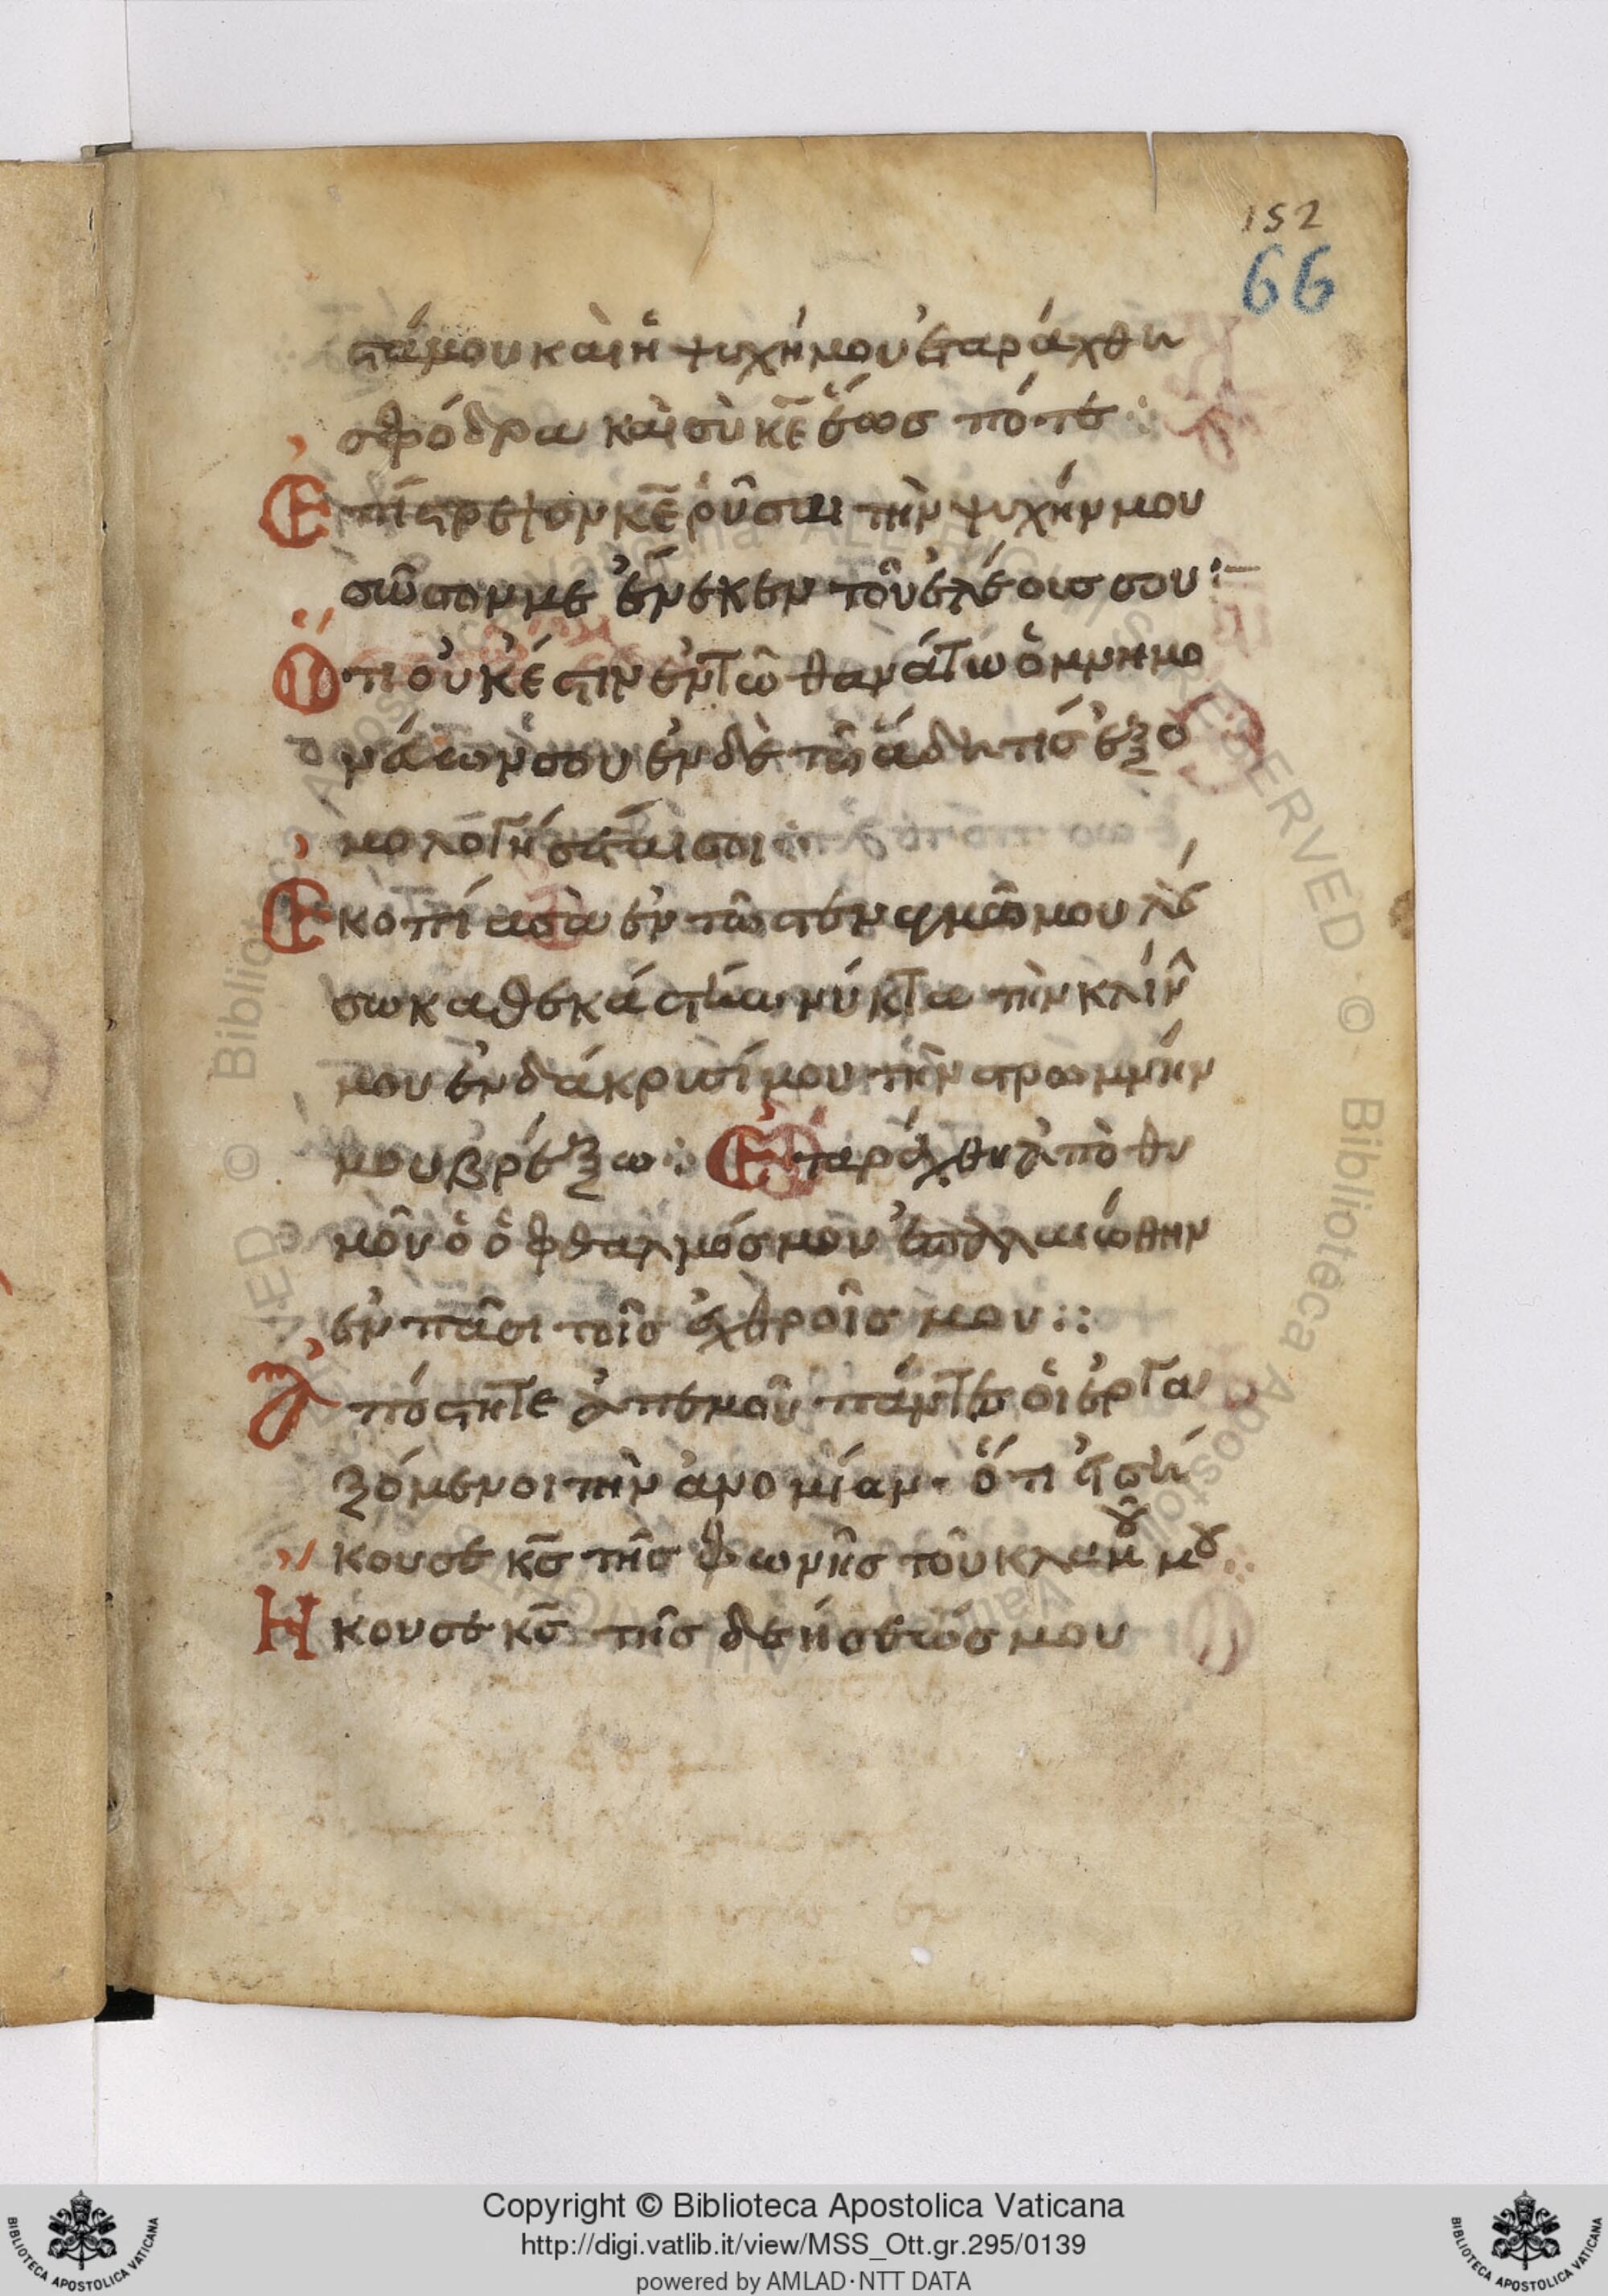 152
66
στάμου καὶ ἡ ψυχήμου ἐταράχθη
σφόδρα καὶ σὺ κε ἕως πότε :
Ἐπίστρεψον κε ῥῦσαι τὴν ψυχήν μου
σῶσον με ἕνεκεν τοῦ ἐλέους σου :–
Ὅτι οὐκ ἔστιν ἐν τῶ θανάτω ὁ μνημο
νέυων σου ἐν δὲ τῶ ἅδη τίς ἐξο
μολογήσεταί σοι :
Ἐκοπίασα ἐν τῶ στεναγμῶ μου λού
σω καθεκάστην νύκτα τὴν κλίν
μου ἐν δάκρυσί μου τὴν στρωμνήν
μου βρέξω : Ἐταράχθη ἀπὸ θυ
μοῦ ὁ ὀφθαλμός μου ἐπαλαιώθην
ἐν πᾶσι τοῖς ἐχθροῖς μου ::
Ἀπόστητε ἀπ ἐμοῦ πάντες οἱ ἐργα
ζόμενοι τὴν ἀνομίαν · ὅτι εἰσή
κουσε κς τῆς φωνῆς τοῦ κλαυθμοῦ μου :
Ἤκουσε κς τῆς δεήσεώς μου
Copyright © Biblioteca Apostolica Vaticana
http://digi.vatlib.it/view/MSS_Ott.gr.295/0139
powered by AMLAD·NTT DATA